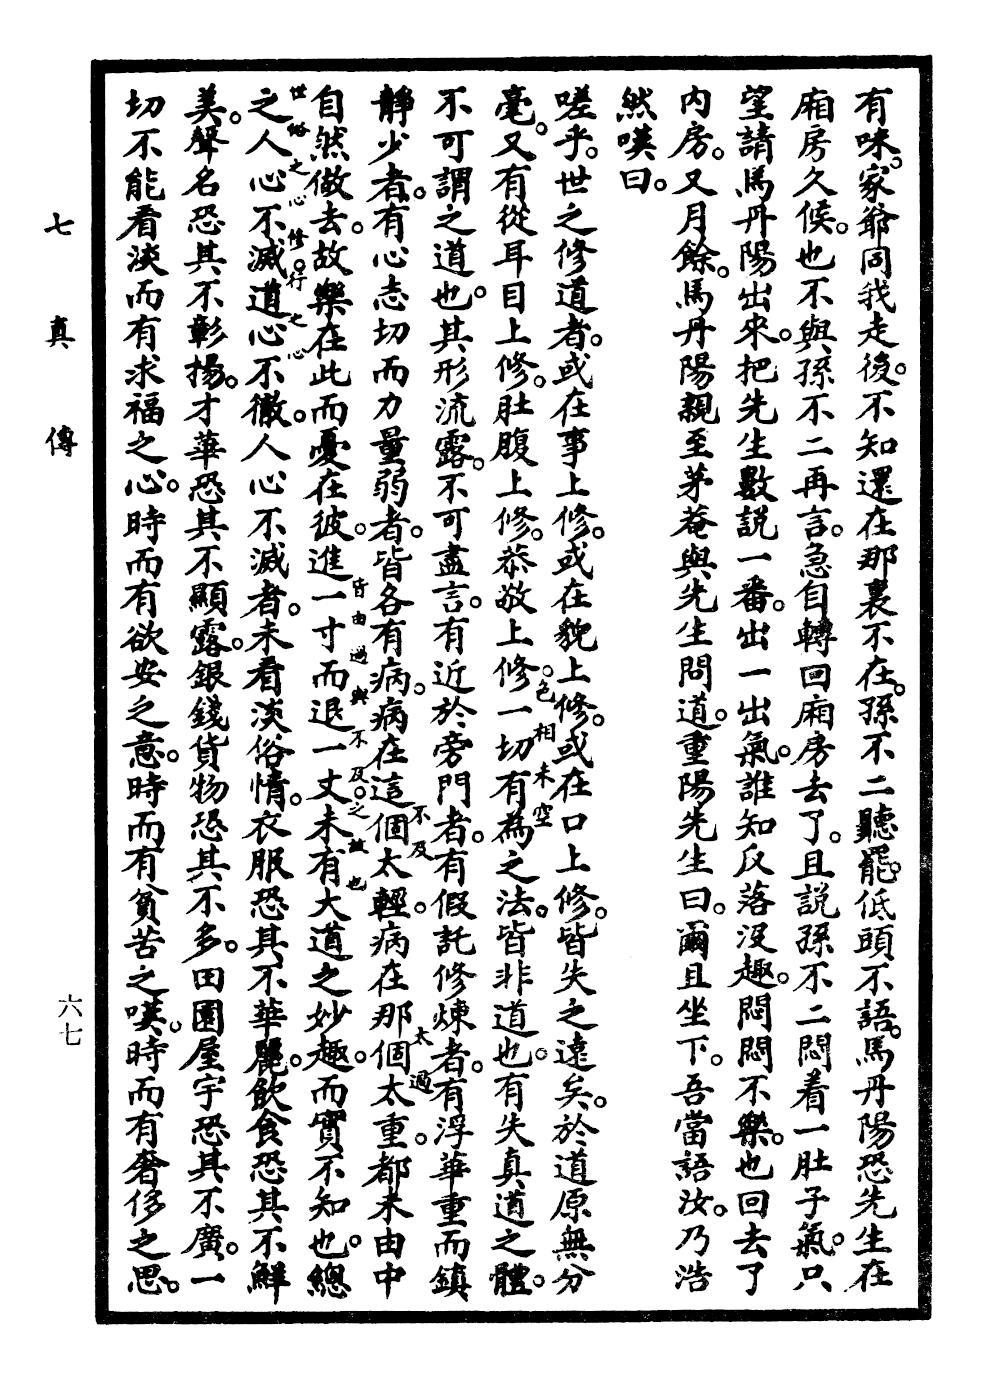 有味。家爺同我走後。不知還在那裏不在。孫不二聽罷。低頭不語。馬丹陽恐先生在
廂房久候。也不與孫不二再言。急自轉回廂房去了。且説孫不二悶着一肚子氣。只
望請馬丹陽出來。把先生數説一番。出一出氣。誰知反落没趣。悶悶不樂。也回去了
内房。又月餘。馬丹陽親至茅菴與先生問道。重陽先生曰。爾且坐下。吾當語汝。乃浩
然嘆曰。
嗟乎。世之修道者。或在事上修。或在貌上修。或在口上修。皆失之遠矣。於道原無分
毫。又有從耳目上修。肚腹上修。恭敬上修。色相未空一切有為之法。皆非道也。有失真道之體。
不可謂之道也。其形流露。不可盡言。有近於旁門者。有假託修煉者。有浮華重而鎮
靜少者。有心志切而力量弱者。皆各有病。病在這個太輕。不及病在那個太重。太過都未由中
自然做去。故樂在此而憂在彼。進一寸而退一丈。皆由過與不及。之故也未有大道之妙趣。而實不知也。總
之人心不滅。道心不徹。世俗之心修。行之心人心不滅者。未看淡俗情。衣服恐其不華麗。飲食恐其不鮮
美。聲名恐其不彰揚。才華恐其不顯露。銀錢貨物恐其不多。田園屋宇恐其不廣。一
切不能看淡。而有求福之心。時而有欲安之意。時而有貧苦之嘆。時而有奢侈之思。
七真傳
六七